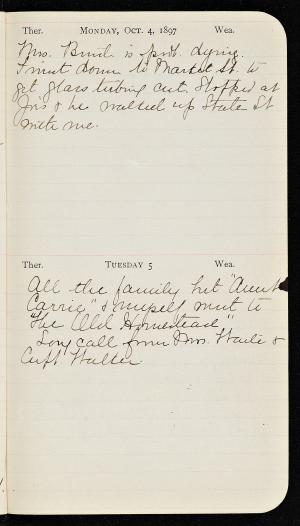 Ther. MONDAY, OCT. 4, 1897 Wea.
Mrs. is prob. dying.
I went down to Market St. to
get glass tubing cut. Stopped at
Jo's & he walked up State St
with me.
Ther. TUESDAY 5 Wea.
All the family but "Aunt
Carrie" & myself went to
"The Old Homestead"
Long call from Mrs. &
Capt Walker